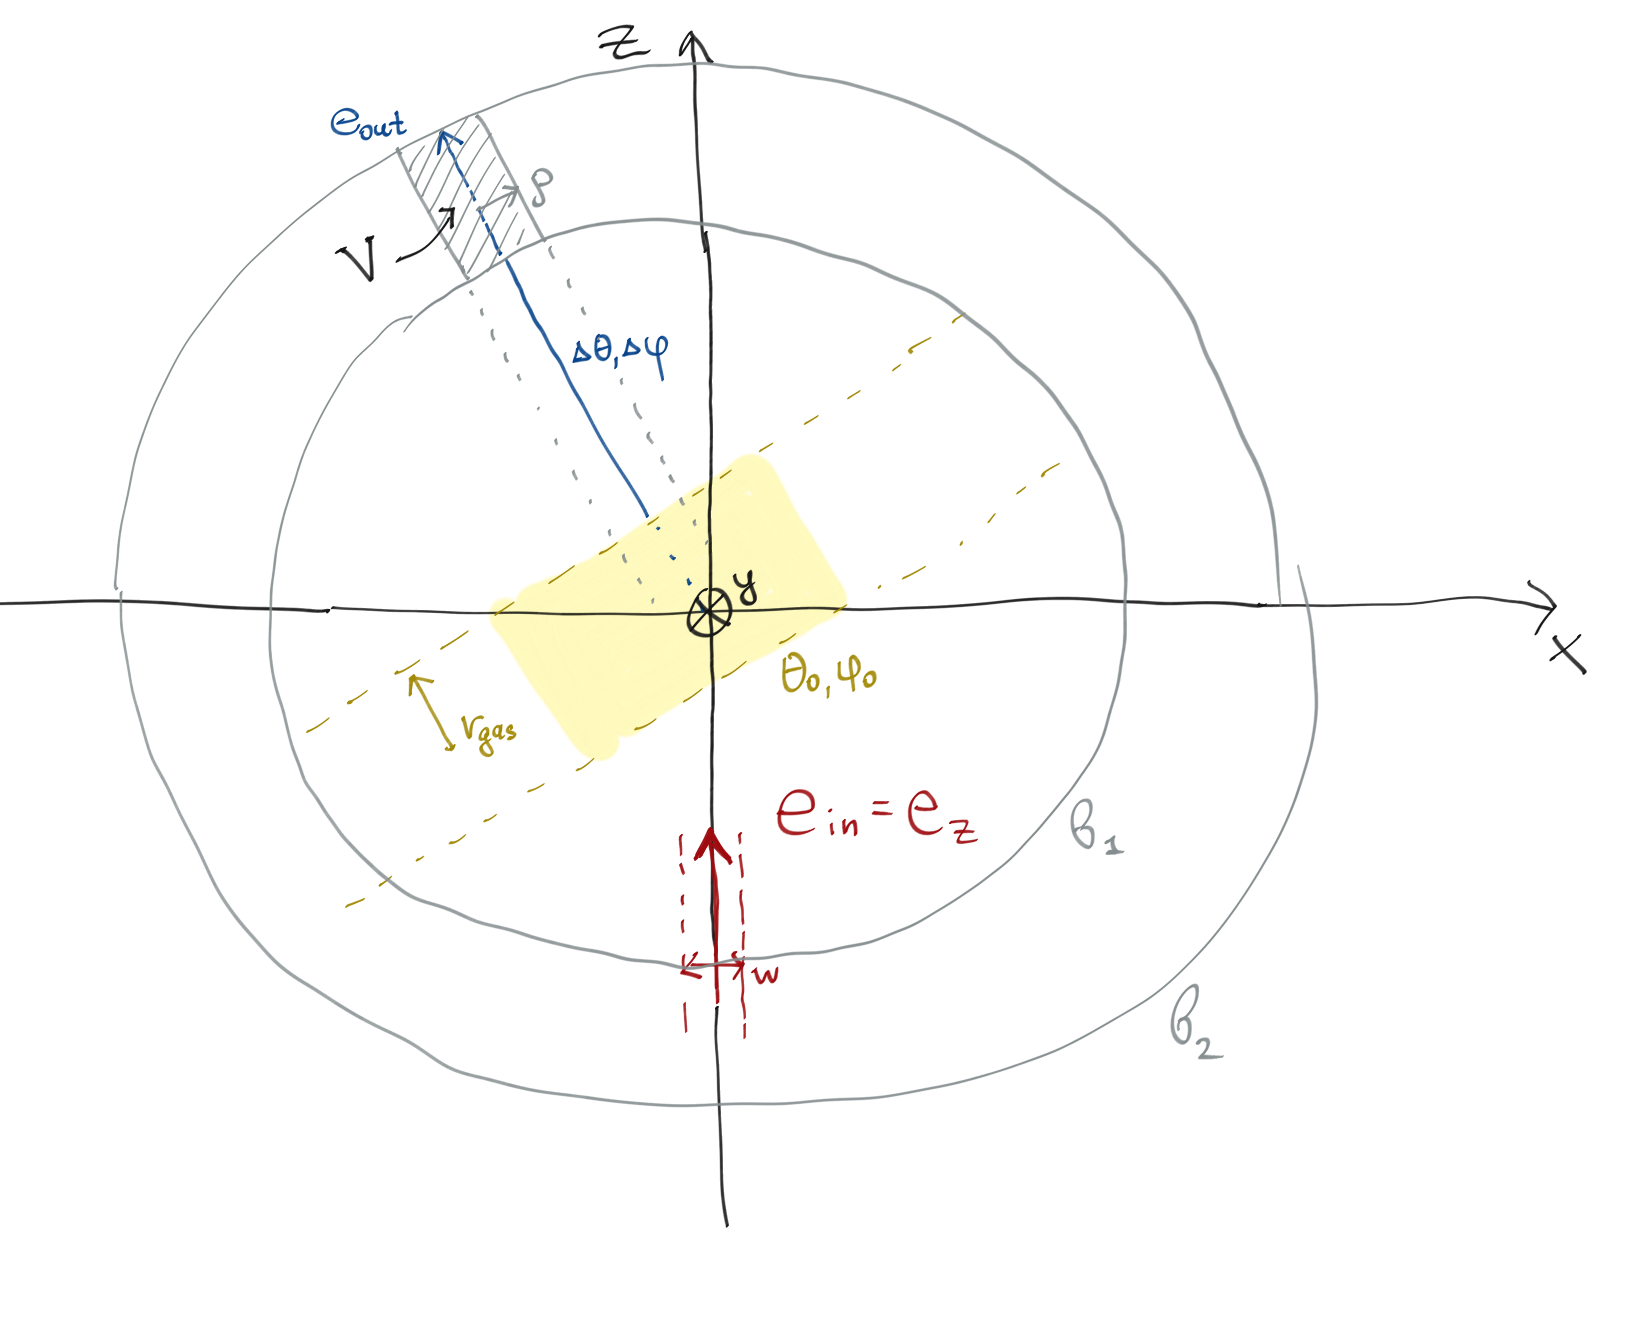 z
e_out
ρ
V
Δθ, Δφ
y
x
θ₀, φ₀
r_gas
e_in = e_z
β₁
w
β₂